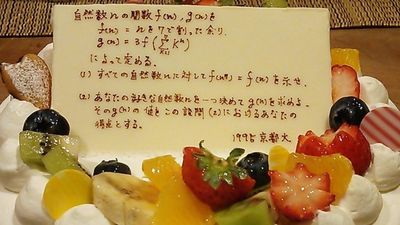 自然数nの関数f(n), g(n)を
f(n) = nを7で割った余り,
g(n) = 3f(∑_{k=1}^{7} k^n)
によって定める.
(1) すべての自然数nに対してf(n^7) = f(n)を示せ.
(2) あなたの好きな自然数nを一つ決めてg(n)を求めよ.
そのg(n)の値をこの設問(2)におけるあなたの
得点とする.
1995 京都大